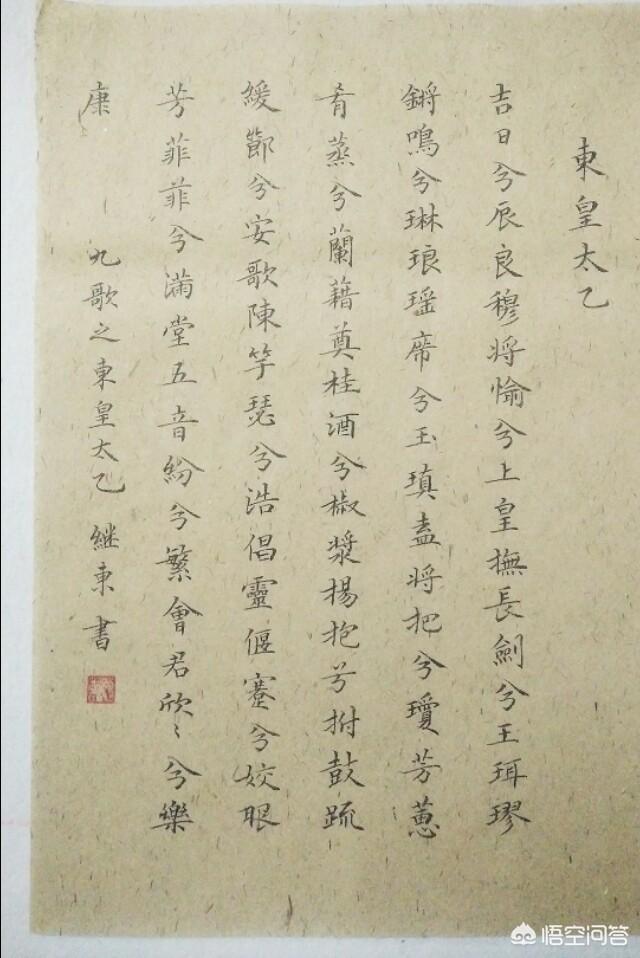 東皇太乙
吉日兮辰良穆将愉兮上皇撫長劍兮王珥璆
鏘鳴兮琳琅瑶席兮玉瑱盍将把兮瓊芳蕙
肴蒸兮蘭藉奠桂酒兮椒漿揚抱兮拊鼓疏
緩節兮安歌陳竽瑟兮浩倡靈偃蹇兮姣服
芳菲菲兮滿堂五音紛兮繁會君欣〻兮樂
康 九歌之東皇太乙 继東書
悟空问答